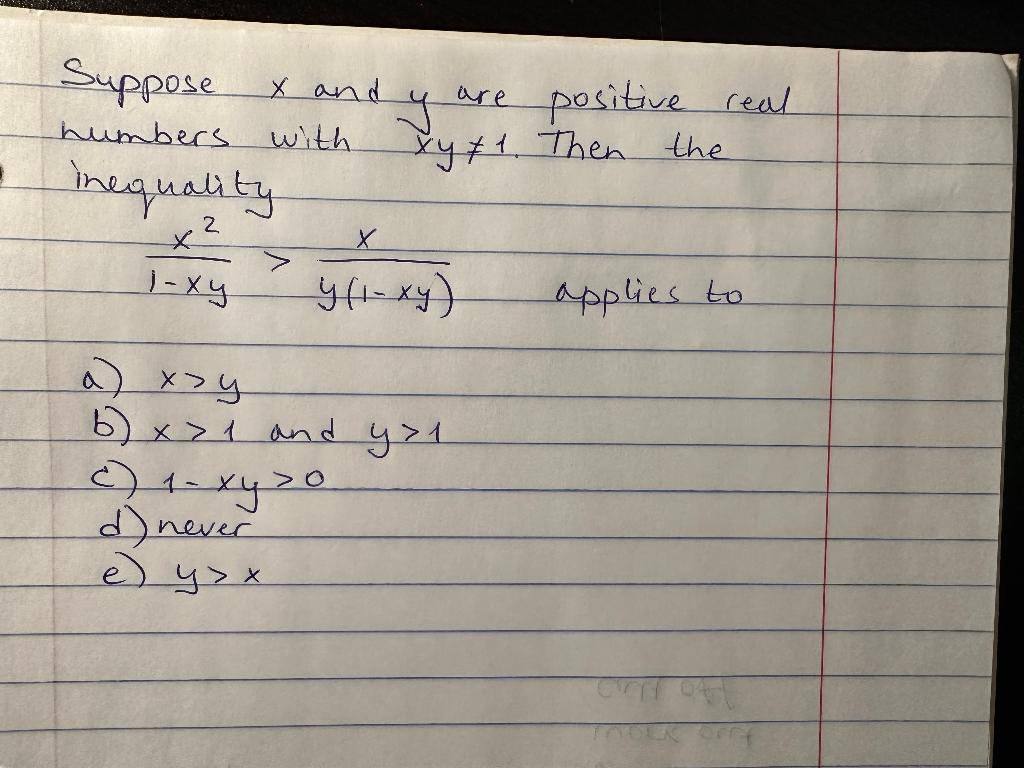 Suppose x and y are positive real
numbers with xy ≠ 1. Then the
inequality
x² / (1-xy) > x / (y(1-xy)) applies to
a) x>y
b) x>1 and y>1
c) 1-xy>0
d) never
e) y>x